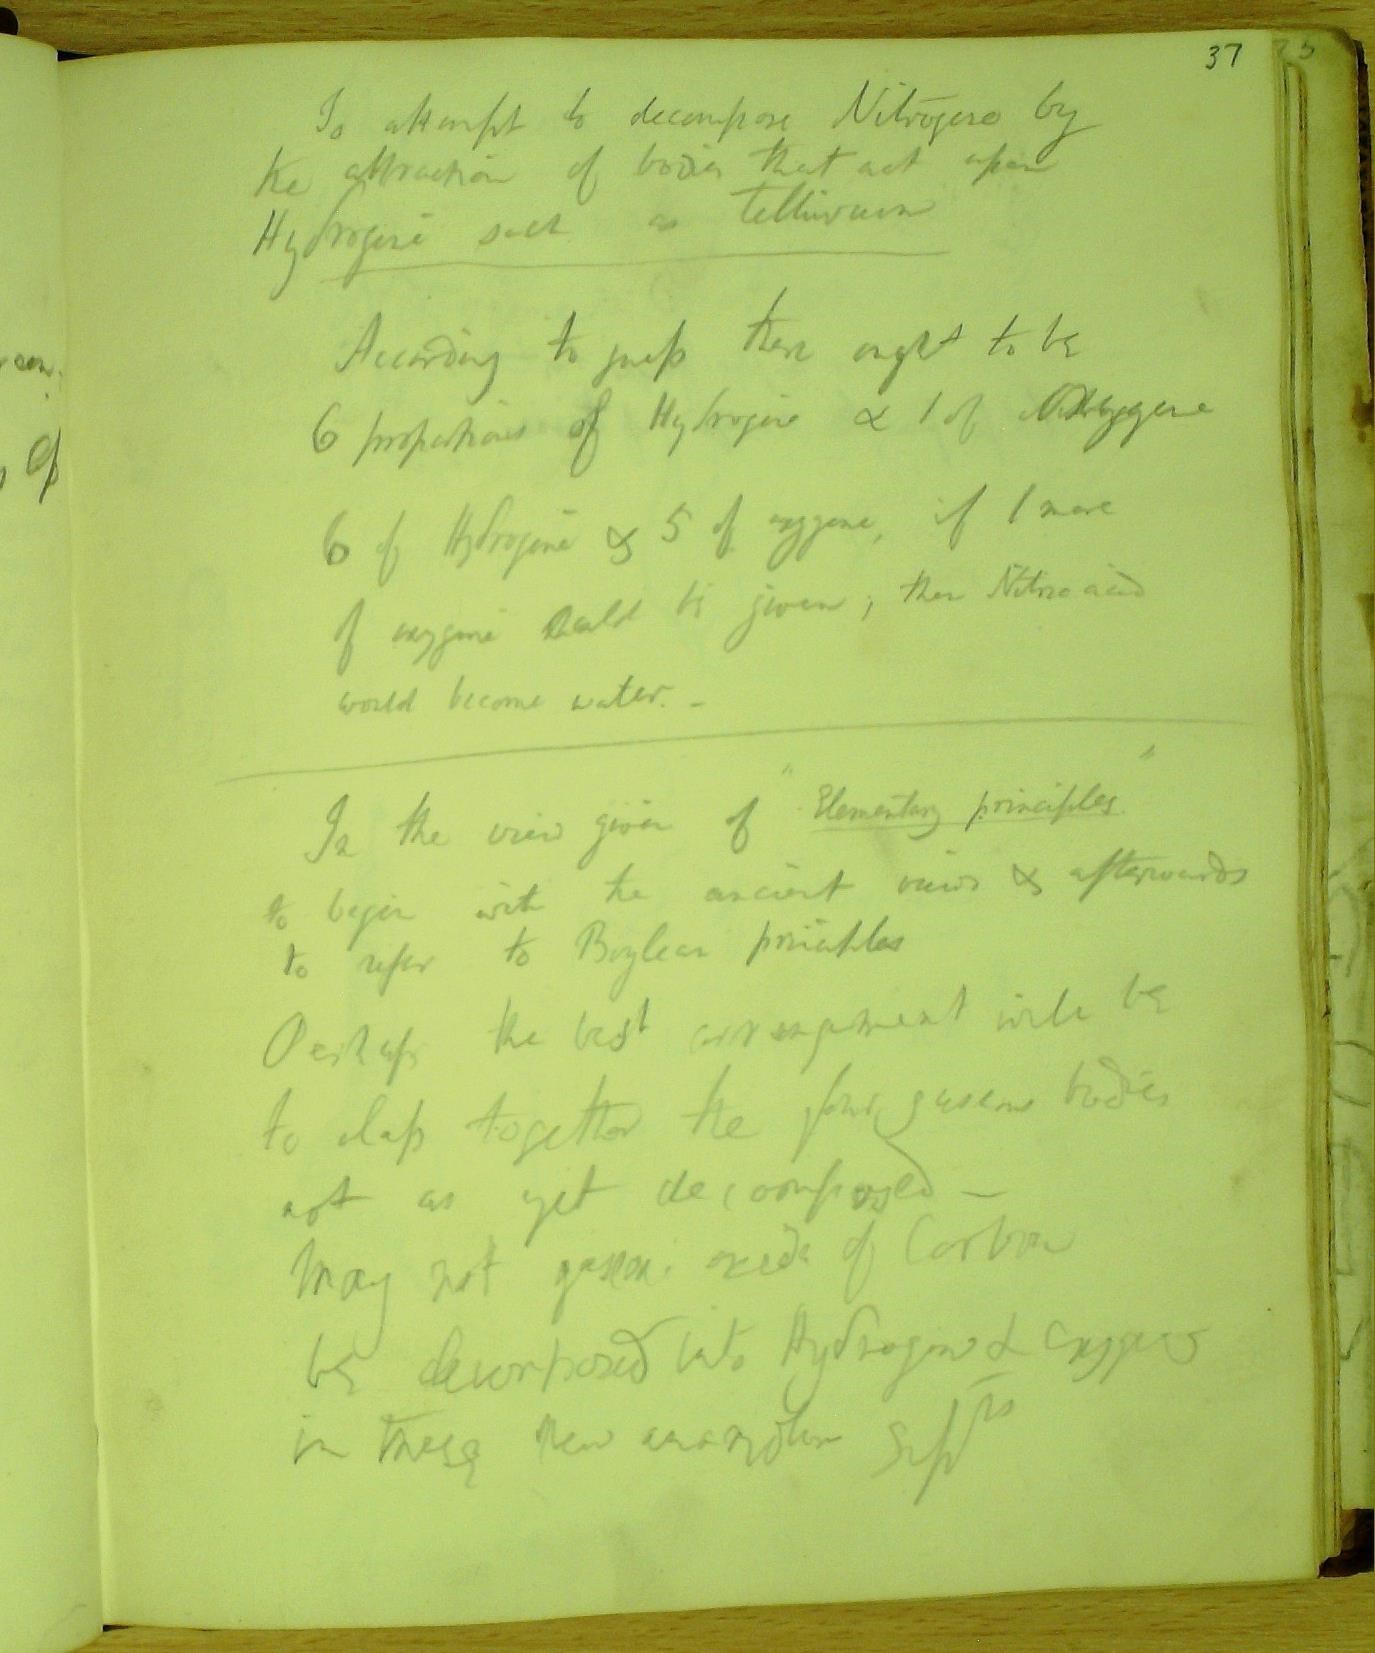 37
To attempt to decompose Nitrogene by
the attraction of bodies that act upon
Hydrogene such as Tellurium
According to guess there ought to be
6 proportions of Hydrogene & 1 of
6 of Hydrogene & 5 of oxygene, if 1 more
of oxygene could be given, then Nitric acid
would become water. –
In the view given of "Elementary principles"
to begin with the ancient views & afterwards
to refer to Boylean principles
Perhaps the best arrangement will be
to class together the four gaseous bodies
not as yet decomposed –
May not gaseous oxide of Carbon
be decomposed into Hydrogen & oxygene
in these new